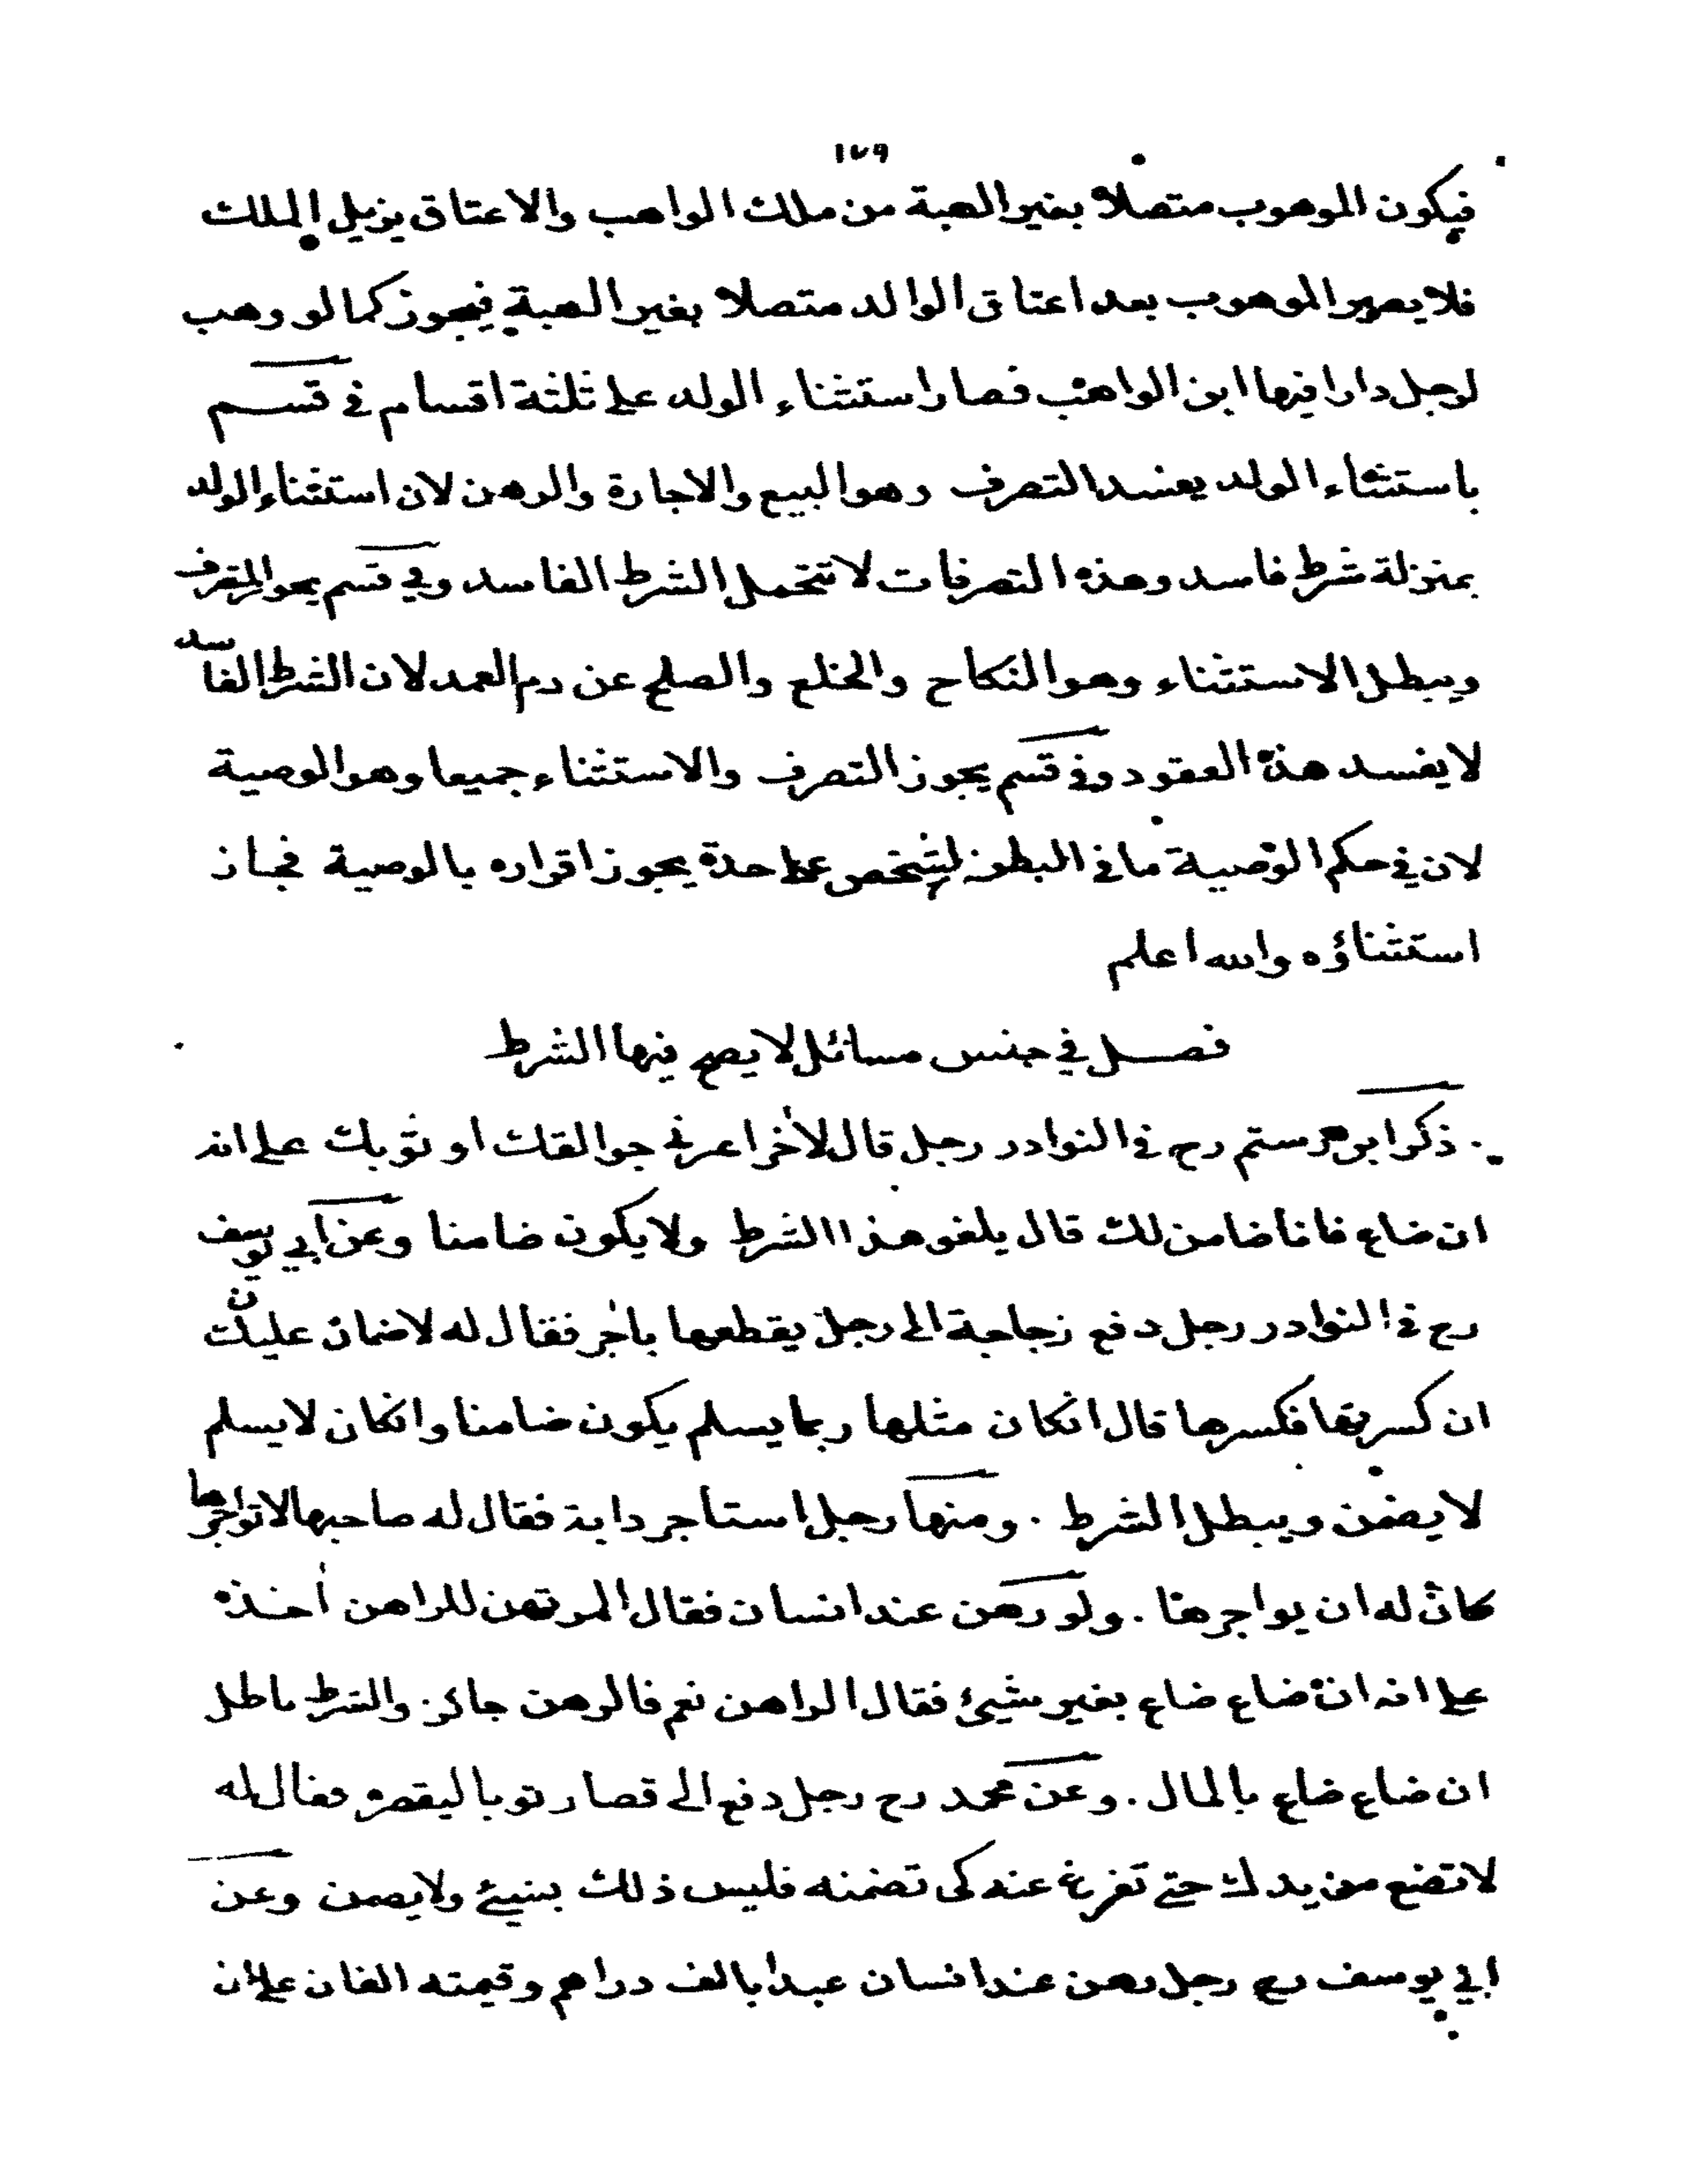 ١٧٩
فيكون الموهوب متصلا بغير الهبة من ملك الواهب والاعتاق يزيل الملك
فلا يصير الموهوب بعد اعتاق الوالد متصلا بغير الهبة فيجوز كما لو وهب
لرجل دارا فيها ابن الواهب فصار استثناء الولد على ثلثة اقسام في قسم
باستثناء الولد يفسد التصرف وهو البيع والاجارة والرهن لان استثناء الولد
بمنزلة شرط فاسد وهذه التصرفات لا تتحمل الشرط الفاسد وفي قسم يجوز التصرف
ويبطل الاستثناء وهو النكاح والخلع والصلح عن دم العمد لان الشرط الفاسد
لا يفسد هذه العقود وفي قسم يجوز التصرف والاستثناء جميعا وهو الوصية
لان في حكم الوصية ما في البطن لشخص على حدة يجوز اقراره بالوصية فجاز
استثناؤه والله اعلم
فصل في جنس مسائل لا يصح فيها الشرط
ذكر ابن رستم رح في النوادر رجل قال لاخر اعرني جوالقك او ثوبك على انه
ان ضاع فانا ضامن لك قال يلغو هذا الشرط ولا يكون ضامنا وعن ابي يوسف
رح في النوادر رجل دفع زجاجة الى رجل يقطعها باجر فقال له لا ضمان عليك
ان كسرتها فكسرها قال ان كان مثلها ربما يسلم يكون ضامنا وان كان لا يسلم
لا يضمن ويبطل الشرط . ومنها رجل استاجر دابة فقال له صاحبها لا تواجرها
كان له ان يواجرها . ولو رهن عند انسان فقال المرتهن للراهن أخذه
على انه ان ضاع ضاع بغير شيئ فقال الراهن نعم فالرهن جائز والشرط باطل
ان ضاع ضاع بالمال . وعن محمد رح رجل دفع الى قصار ثوبا ليقصره فقال له
لا تضع من يدك حتى تفرغ عنه كى تضمنه فليس ذلك بشيئ ولا يضمن وعن
ابي يوسف رح رجل رهن عند انسان عبدا بالف دراهم وقيمته الفان على ان